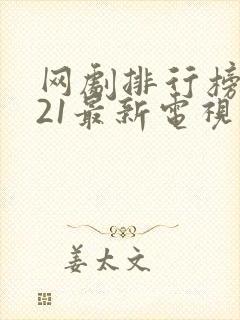 网劇排行榜
21最新電視
姜太文